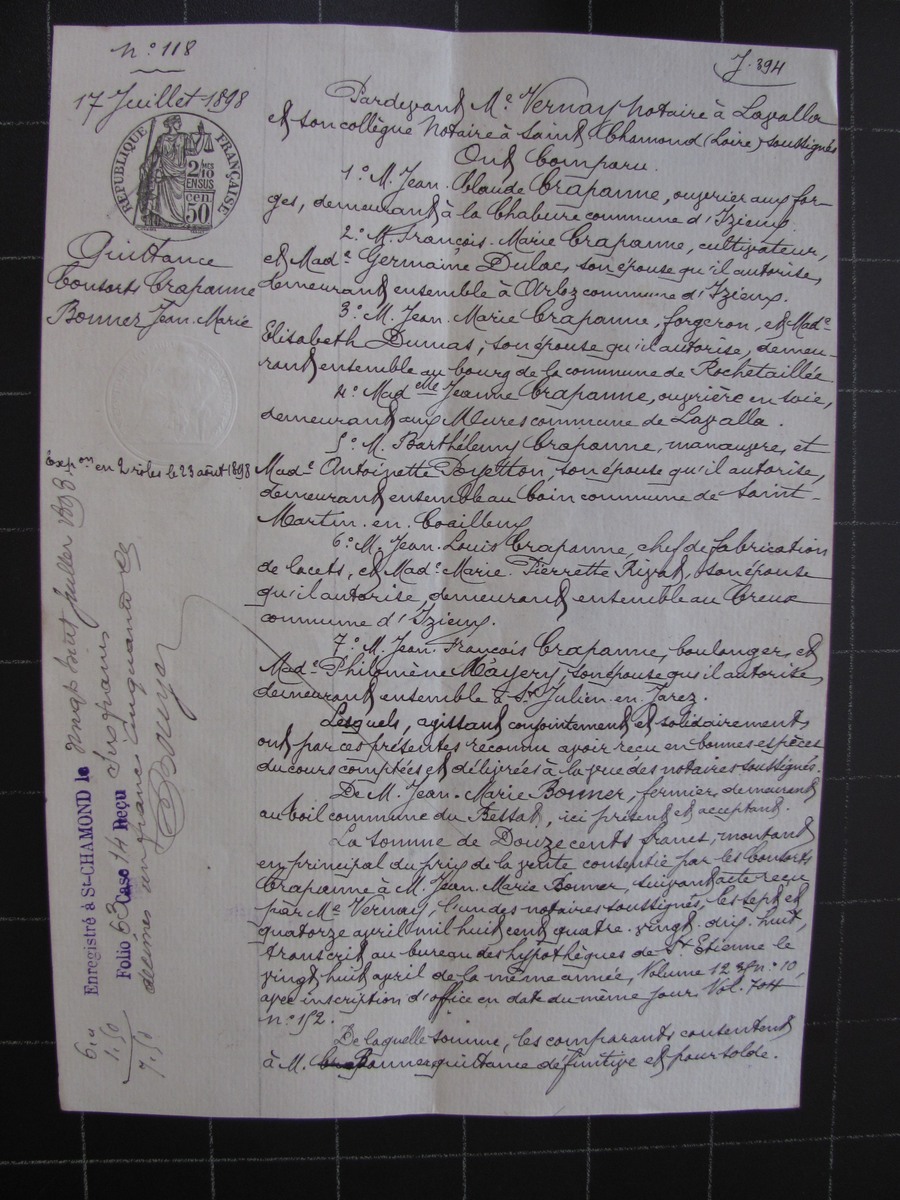 N° 118
J. 394
17 Juillet 1898
RÉPUBLIQUE FRANÇAISE
2/10
EN SUS
50 cen
Quittance
Consorts Crapanne
Bonner Jean-Marie
Exp.on en 2 rôles le 23 août 1898
Enregistré à St-CHAMOND le vingt huit juillet 1898
Folio 63 Case 14 Reçu six francs
décimes un franc cinquante
6,00
1,50
7,50
Pardevant Me Vernay Notaire à Lavalla
et son collègue Notaire à Saint Chamond (Loire) soussignés
Ont Comparu.
1° M. Jean-Claude Crapanne, ouvrier aux for-
ges, demeurant à la Chabure commune d'Izieux.
2° M. François-Marie Crapanne, cultivateur,
et Made Germaine Dulac, son épouse qu'il autorise,
demeurant ensemble à Arloz commune d'Izieux.
3° M. Jean-Marie Crapanne, forgeron, et Made
Elisabeth Dumas, son épouse qu'il autorise, demeu-
rant ensemble au bourg de la commune de Rochetaillée
4° Madelle Jeanne Crapanne, ouvrière en soie,
demeurant aux Mures commune de Lavalla.
5° M. Barthélemy Crapanne, manœuvre, et
Made Antoinette Poyetton, son épouse qu'il autorise,
demeurant ensemble au Coin commune de Saint-
Martin-en-Coailleux
6° M. Jean-Louis Crapanne, chef de fabrication
de lacets, et Made Marie-Pierrette Rivat, son épouse
qu'il autorise, demeurant ensemble au Creux
commune d'Izieux.
7° M. Jean-François Crapanne, boulanger, et
Made Philomène Mayery, son épouse qu'il autorise,
demeurant ensemble à St Julien-en-Jarez.
Lesquels, agissant conjointement et solidairement,
ont par ces présentes reconnu avoir reçu en bonnes espèces
du cours comptées et délivrées à la vue des notaires soussignés.
De M. Jean-Marie Bonner, fermier, demeurant
au boil commune du Bessat, ici présent et acceptant.
La somme de Douze cents francs, montant
en principal du prix de la vente consentie par les Consorts
Crapanne à M. Jean-Marie Bonner, suivant acte reçu
par Me Vernay, l'un des notaires soussignés, les sept et
quatorze avril mil huit cent quatre-vingt-dix-huit,
transcrit au bureau des hypothèques de St Etienne le
vingt huit avril de la même année, Volume 1238 n° 10,
avec inscription d'office en date du même jour Vol. 704
n° 152.
De laquelle somme, les comparants consentent
à M. Bonner quittance définitive et pour solde.